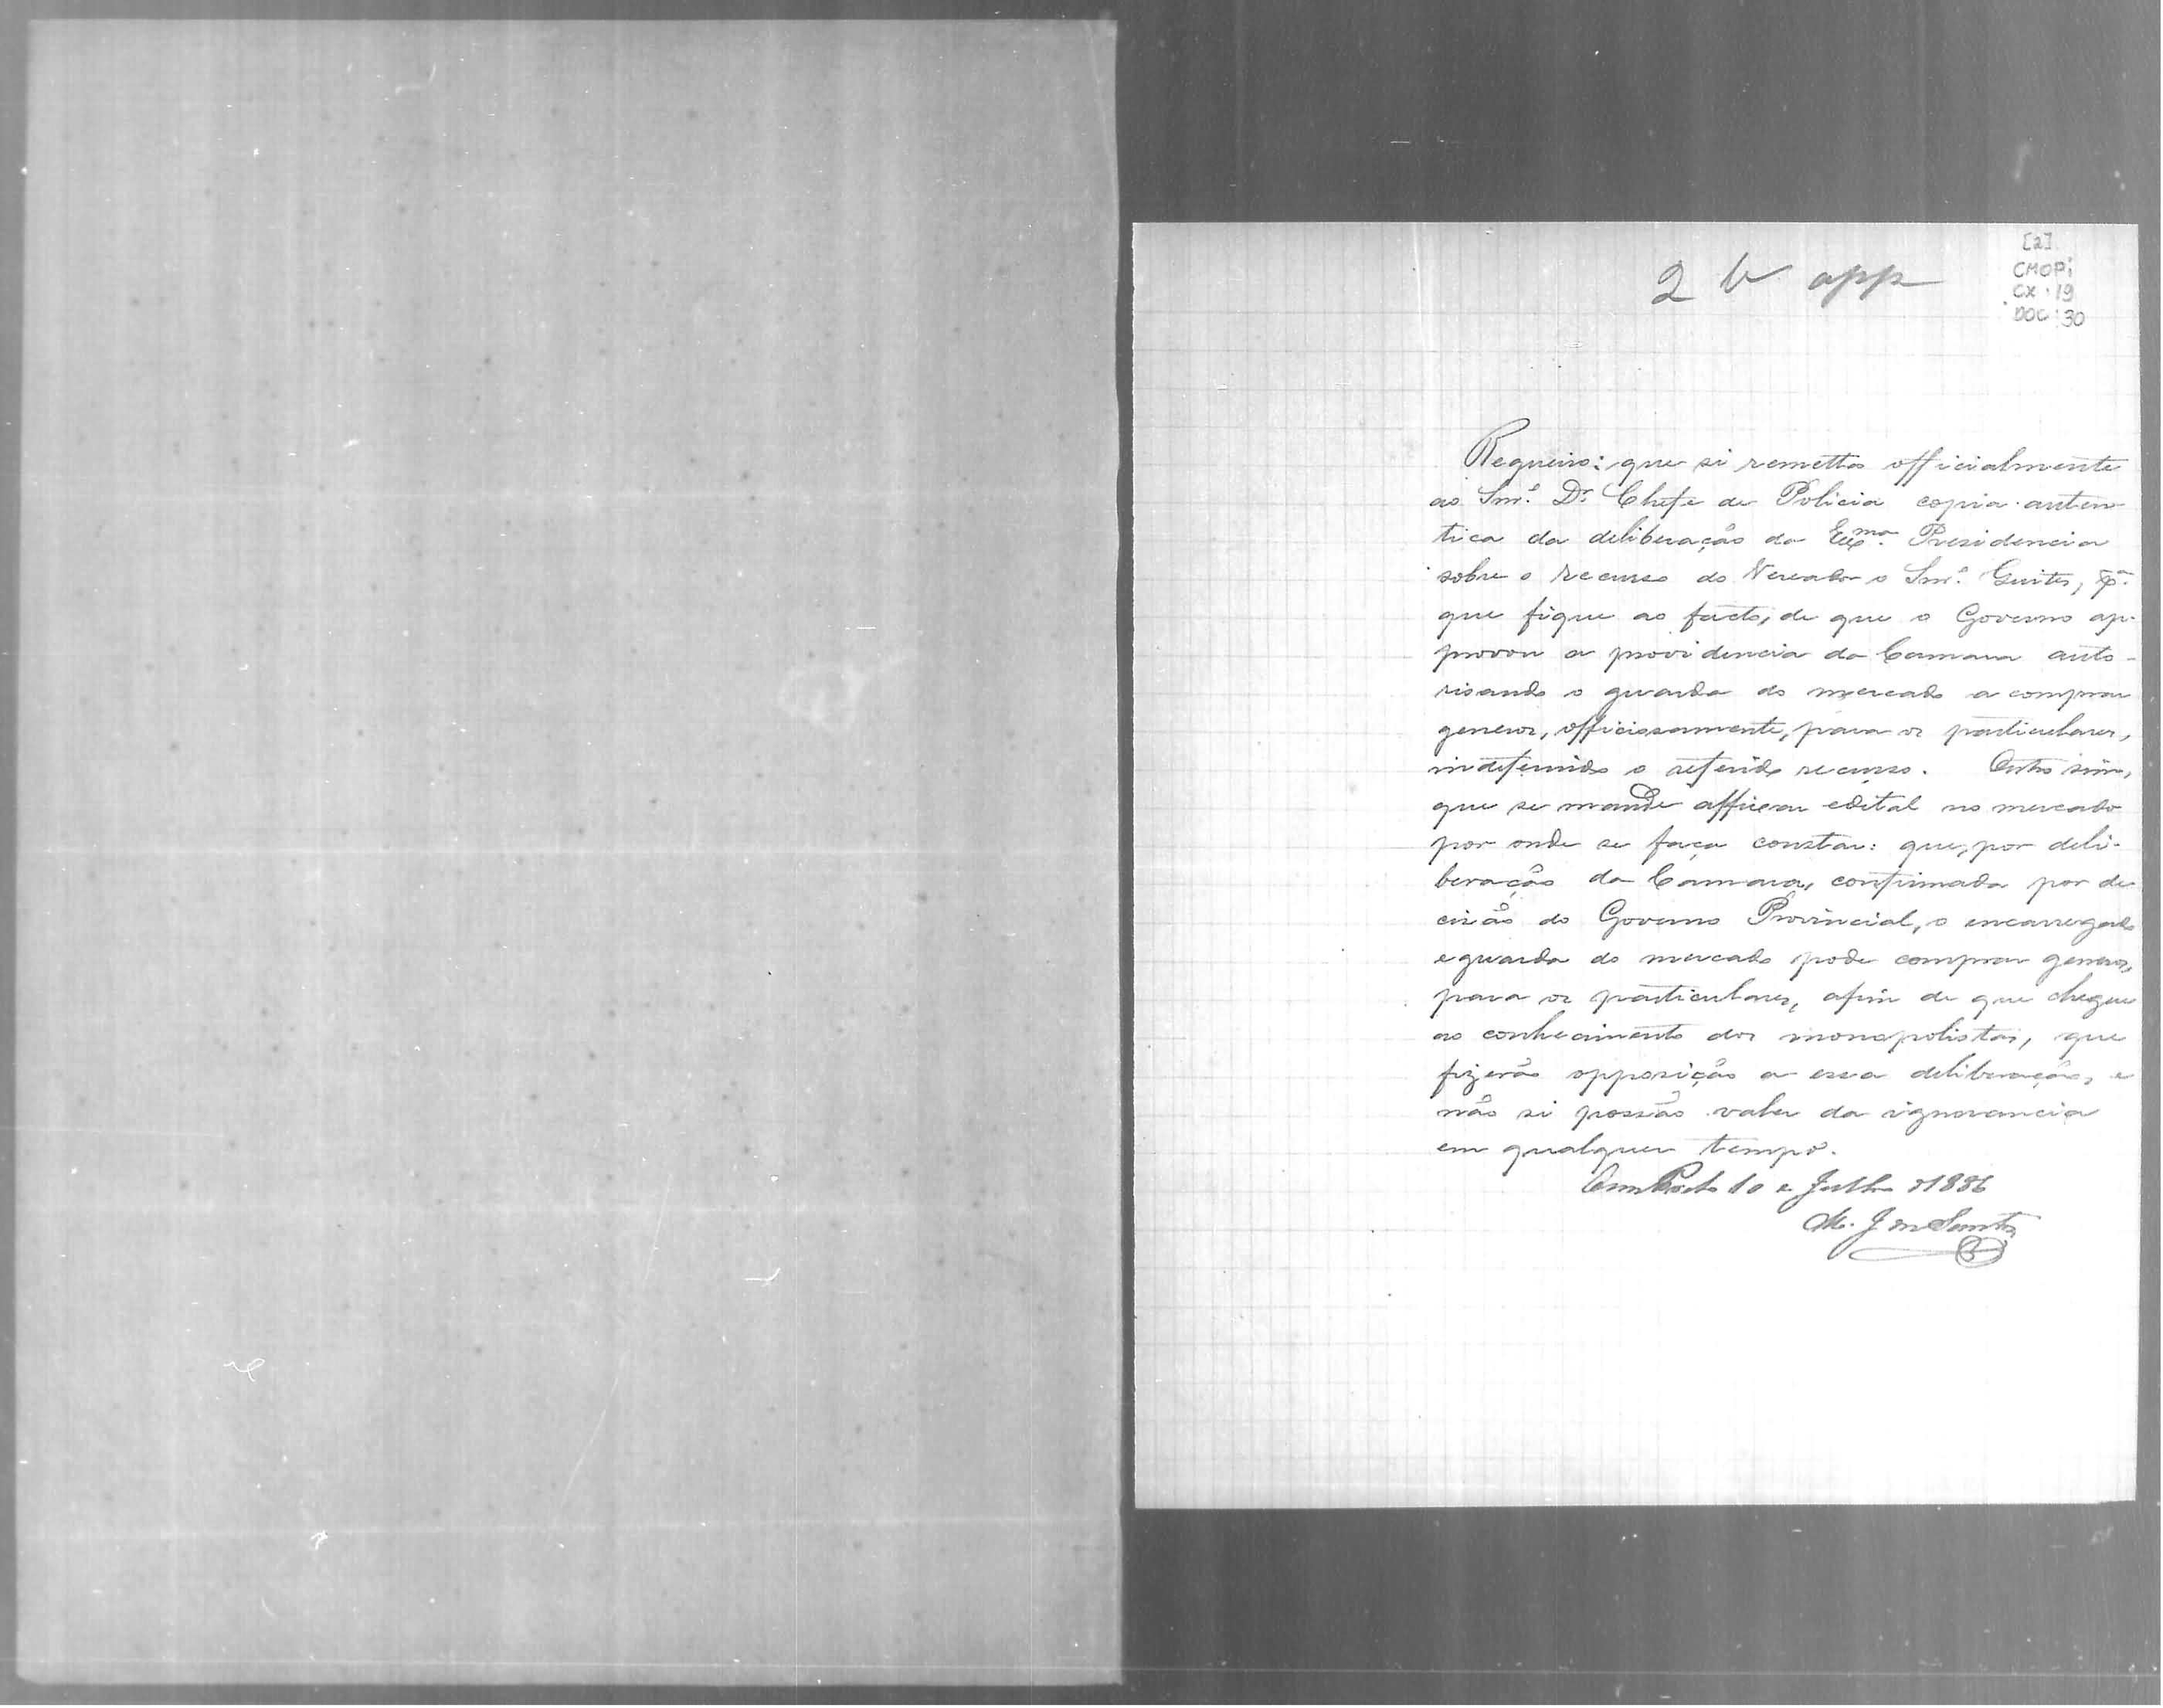 [2]
CMOPi
CX: 19
DOC: 30
2 V app
Requeiro: que si remetta officialmente
ao Smr.º Dr. Chefe de Policia copia auten
tica da deliberação da Exma. Presidencia
sobre o recurso do Vereador o Smr.º
que fique ao facto, de que o Governo ap-
provou a providencia da Camara auto-
risando o guarda do mercado a comprar
generos, officiosamente, para os particulares,
indeferindo o referido recurso. Outro sim,
que se mande affixar edital no mercado
por onde se faça constar: que, por deli-
beração da Camara, confirmada por de
cizão do Governo Provincial, o encarregado
e guarda do mercado pode comprar generos,
para os particulares, afim de que chegue
ao conhecimento dos monopolistas, que
fizerão opposição a essa deliberação, e
não si possão valer da ignorancia
em qualquer tempo.
Ouro Preto 10 de Julho d 1886
M. J. dos Santos